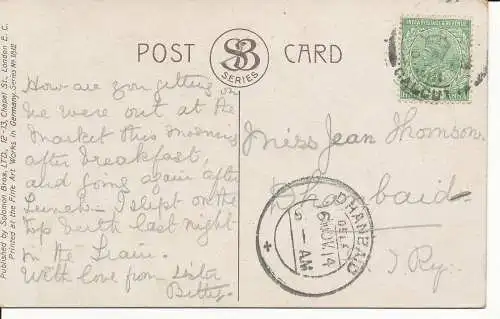 Published by Solomon Bros. LTD., 12-13, Chapel St., London E.C.
Printed at the Fine Art Works in Germany. Series No.
POST CARD
SB
SERIES
INDIA POSTAGE & REVENUE
CALCUT
How are you getting on
we were out at the
market this morning
after breakfast,
and going again after
lunch. I slept on the
top berth last night
in the train.
With love from sister
Betty.
Miss Jean Thomson.
Dhanbaid
Ry.
DHANBAID
DELY
6 NOV. 14
AM